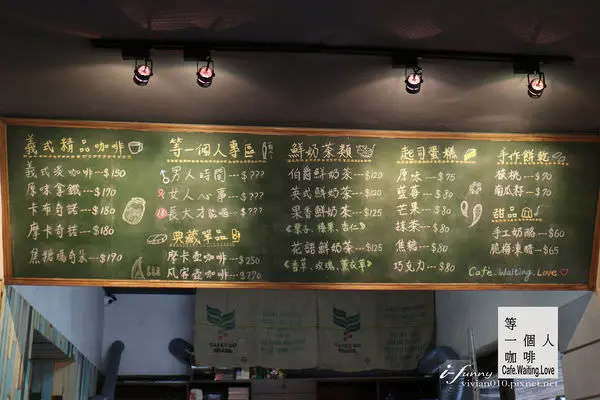 義式精品咖啡
義式淡咖啡---$150
原味拿鐵---$170
卡布奇諾---$180
摩卡奇諾---$180
焦糖瑪奇朵---$190
等一個人專區
男人時間---$???
女人心事---$???
長大才能喝---$???
典藏單品
摩卡壺咖啡---$250
風窖壺咖啡---$270
鮮奶茶類
伯爵鮮奶茶---$120
英式鮮奶茶---$120
果香鮮奶茶---$125
花語鮮奶茶---$125
《香草、玫瑰、薰衣草》
起司蛋糕
原味---$75
藍莓---$80
芒果---$80
抹茶---$80
焦糖---$80
巧克力---$80
手作餅乾
核桃---$70
南瓜籽---$70
甜品
手工奶酪---$60
脆梅凍醋---$65
Cafe.Waiting.Love
CAFES DO BRASIL
CAFES DO BRASIL
等一個人咖啡
Cafe.Waiting.Love
i-funny
vivian010.pixnet.net